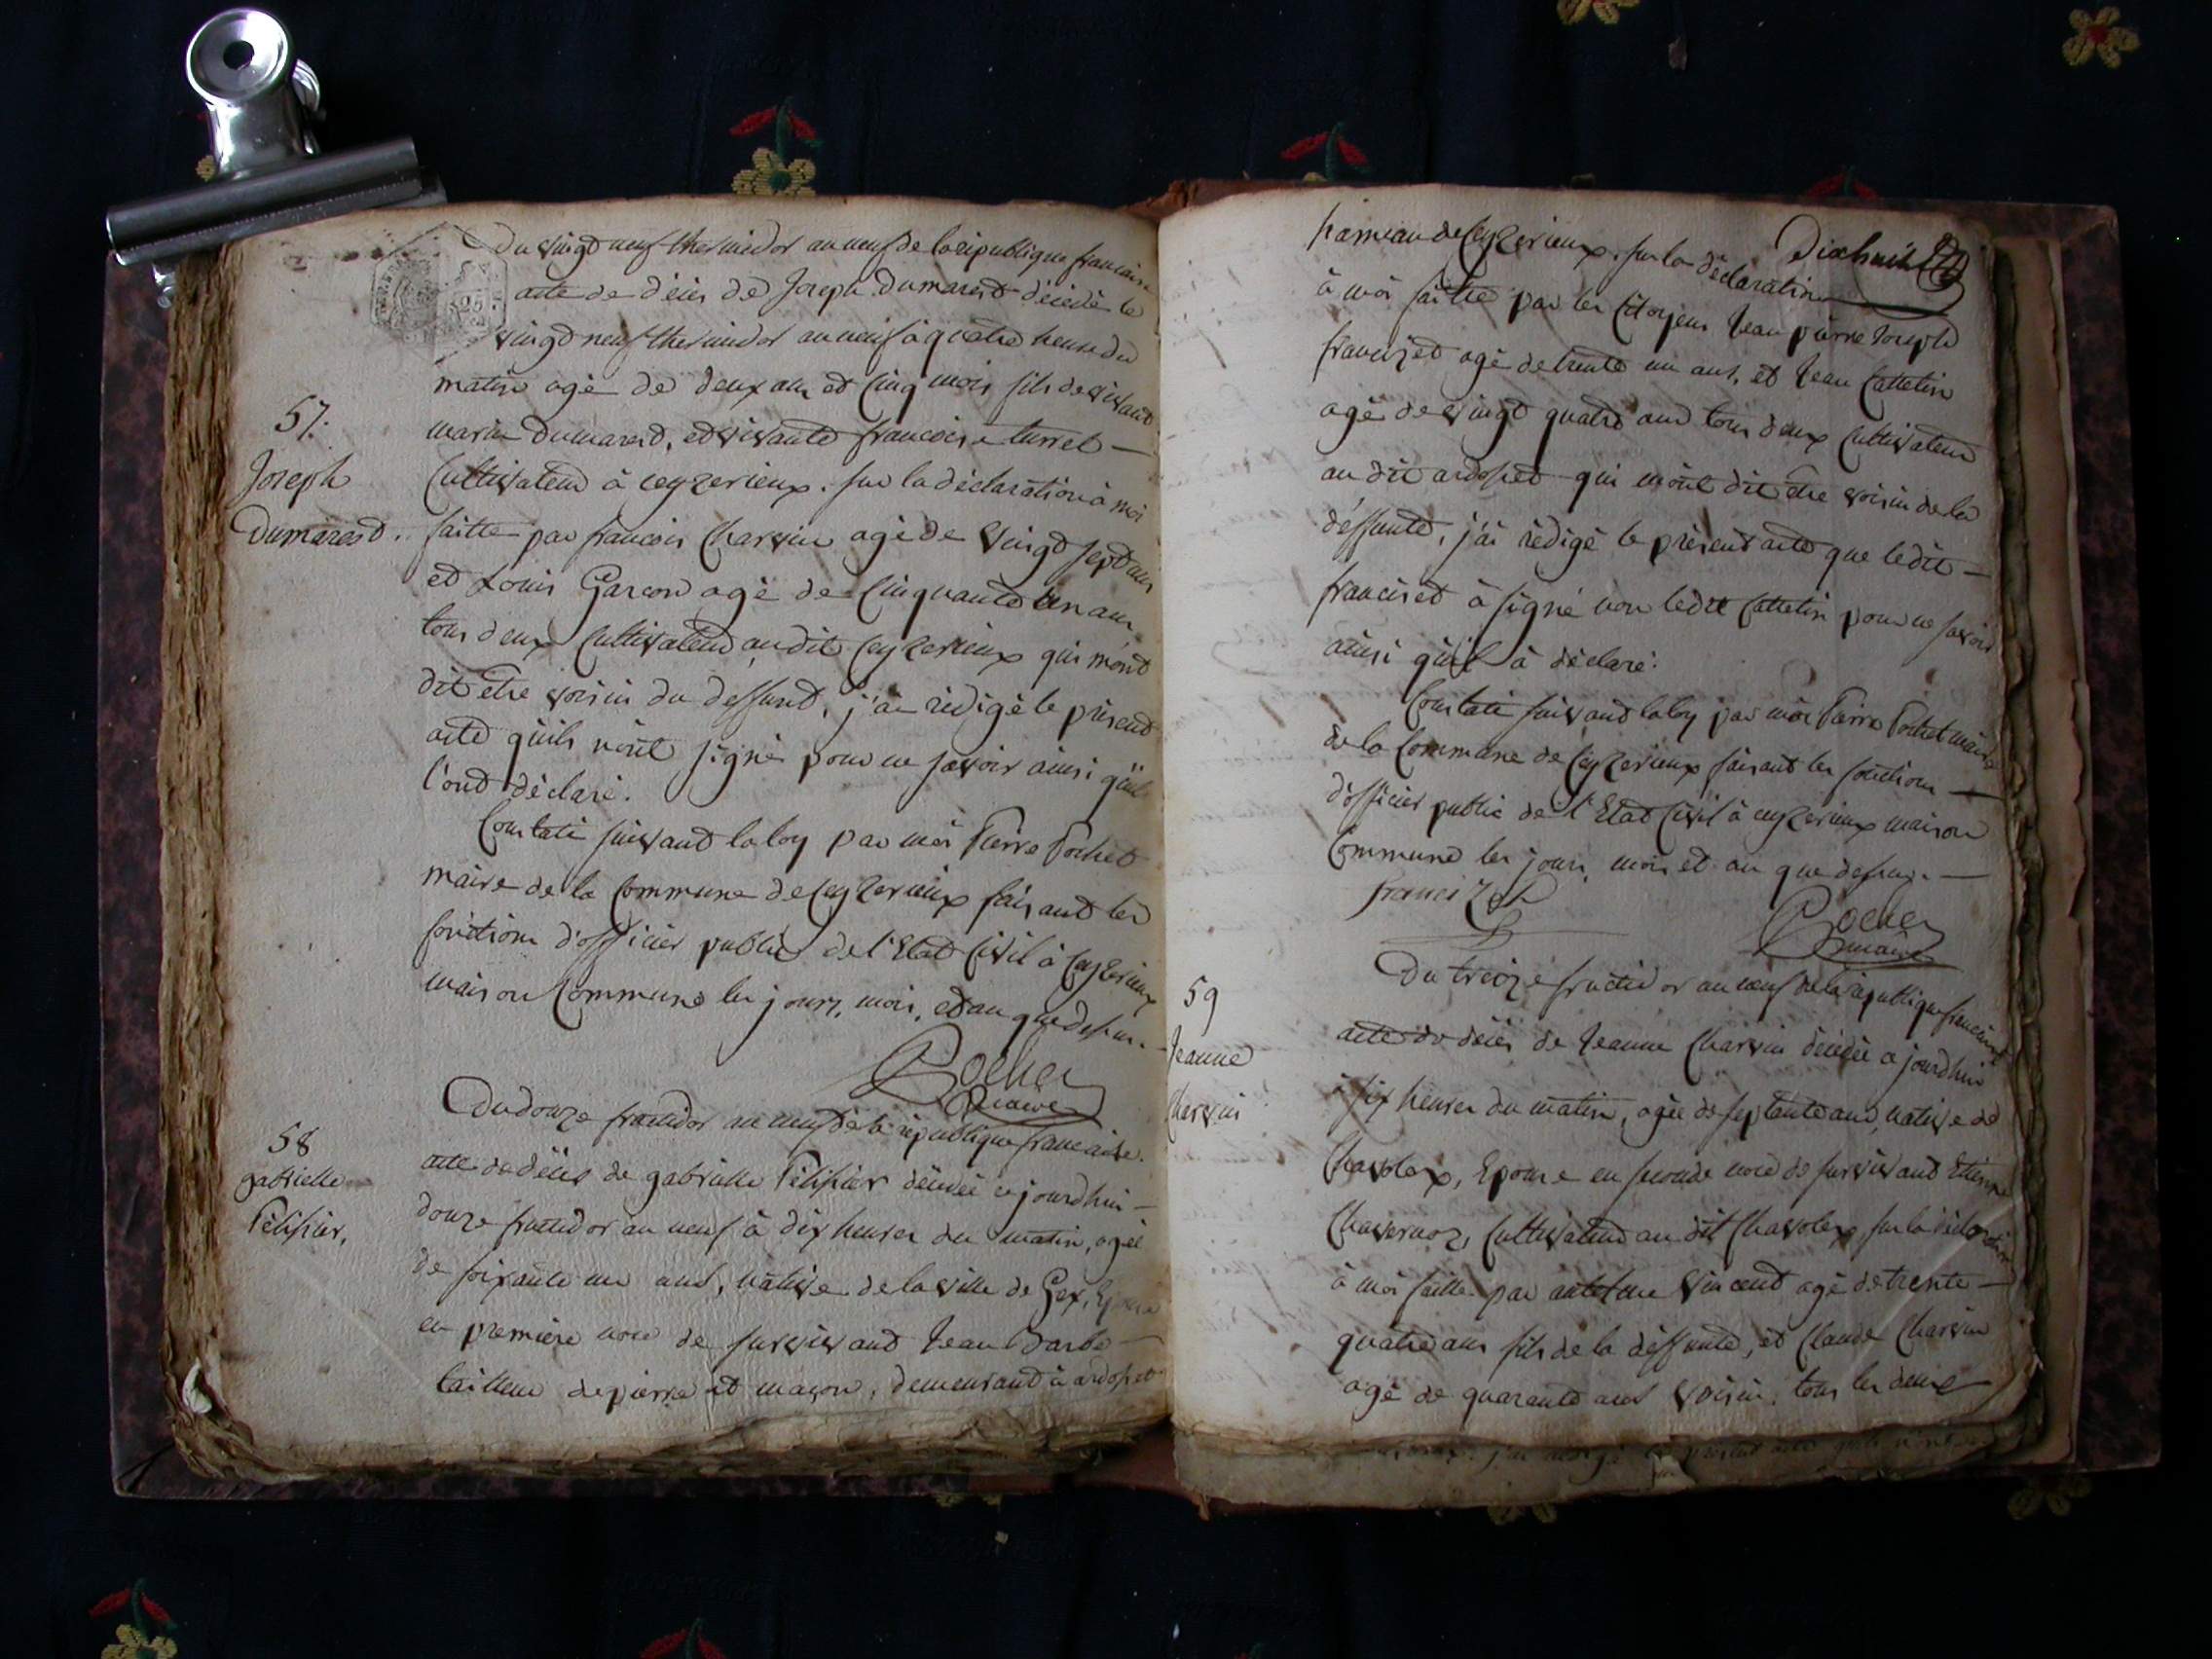 Du vingt neuf thermidor an neuf de la republique francaise
acte de décès de Joseph Dumarest décédé le
vingt neuf thermidor an neuf à quatre heure du
matin agé de deux ans et cinq mois fils de vivant
57.
Joseph
Dumarest.
marin Dumarest, et vivante francoise turrel —
Cultivateur à ceyzerieux. sur la déclaration à moi
faitte par francois Charvin agé de vingt sept ans
et Louis Garcon agé de Cinquante un ans
tous deux Cultivateur au dit Ceyzerieux qui m'ont
dit etre voisin du deffunt, j'ai rédigé le présent
acte qu'ils n'ont signé pour ne savoir ainsi qu'il
l'ont déclaré.
Constaté suivant la loy par moi Pierre Pochet
maire de la Commune de Ceyzerieux faisant les
fonctions d'officier public de l'Etat Civil à Ceyzerieux
maison Commune les jours, mois, et an que dessus.
Pochet
maire
58
gabrielle
Pélissier,
Du douze fructidor an neuf de la république francaise.
acte de décès de gabrielle Pélissier décédée ajourdhui —
douze fructidor an neuf à dix heures du matin, agée
de soixante un ans, native de la ville de Gex, Epouse
en première noce de survivant Jean Barbe —
tailleur de pierre et maçon, demeurant à ardosset
Dixhuit
hameau de Ceyzerieux. sur la déclaration
à moi faitte par les Citoyens Jean pierre Joseph
francizet agé de trente un ans, et Jean Cattelin
agé de vingt quatre ans tous deux Cultivateur
au dit ardosset qui m'ont dit etre voisin de la
déffunte, j'ai rédigé le présent acte que ledit —
francizet à signé non ledit Cattelin pour ne savoir
ainsi qu'il à déclaré.
Constaté suivant la loy par moi Pierre Pochet maire
de la Commune de Ceyzerieux faisant les fonctions —
d'officier public de l'Etat Civil à ceyzerieux maison
Commune les jours, mois et an que dessus. —
francizet
Pochet
maire
59
Jeanne
Charvin
Du treize fructidor an neuf de la république francaise
acte de décès de Jeanne Charvin décédée ajourdhui
à six heures du matin, agée de septante ans, native de
Chavolex, Epouse en seconde noce de survivant Etienne
Chavernoz, Cultivateur au dit Chavolex sur la déclaration
à moi faitte par antelme Vincent agé de trente —
quatre ans fils de la déffunte, et Claude Charvin
agé de quarante ans voisin. tous les deux
j'ai rédigé le présent acte qu'ils n'ont